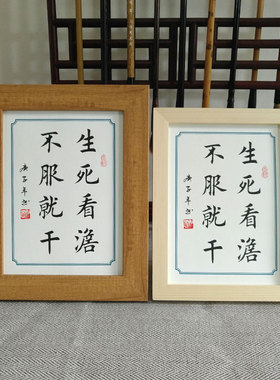 生死看澹
不服就干
庚子年
生死看澹
不服就干
庚子年